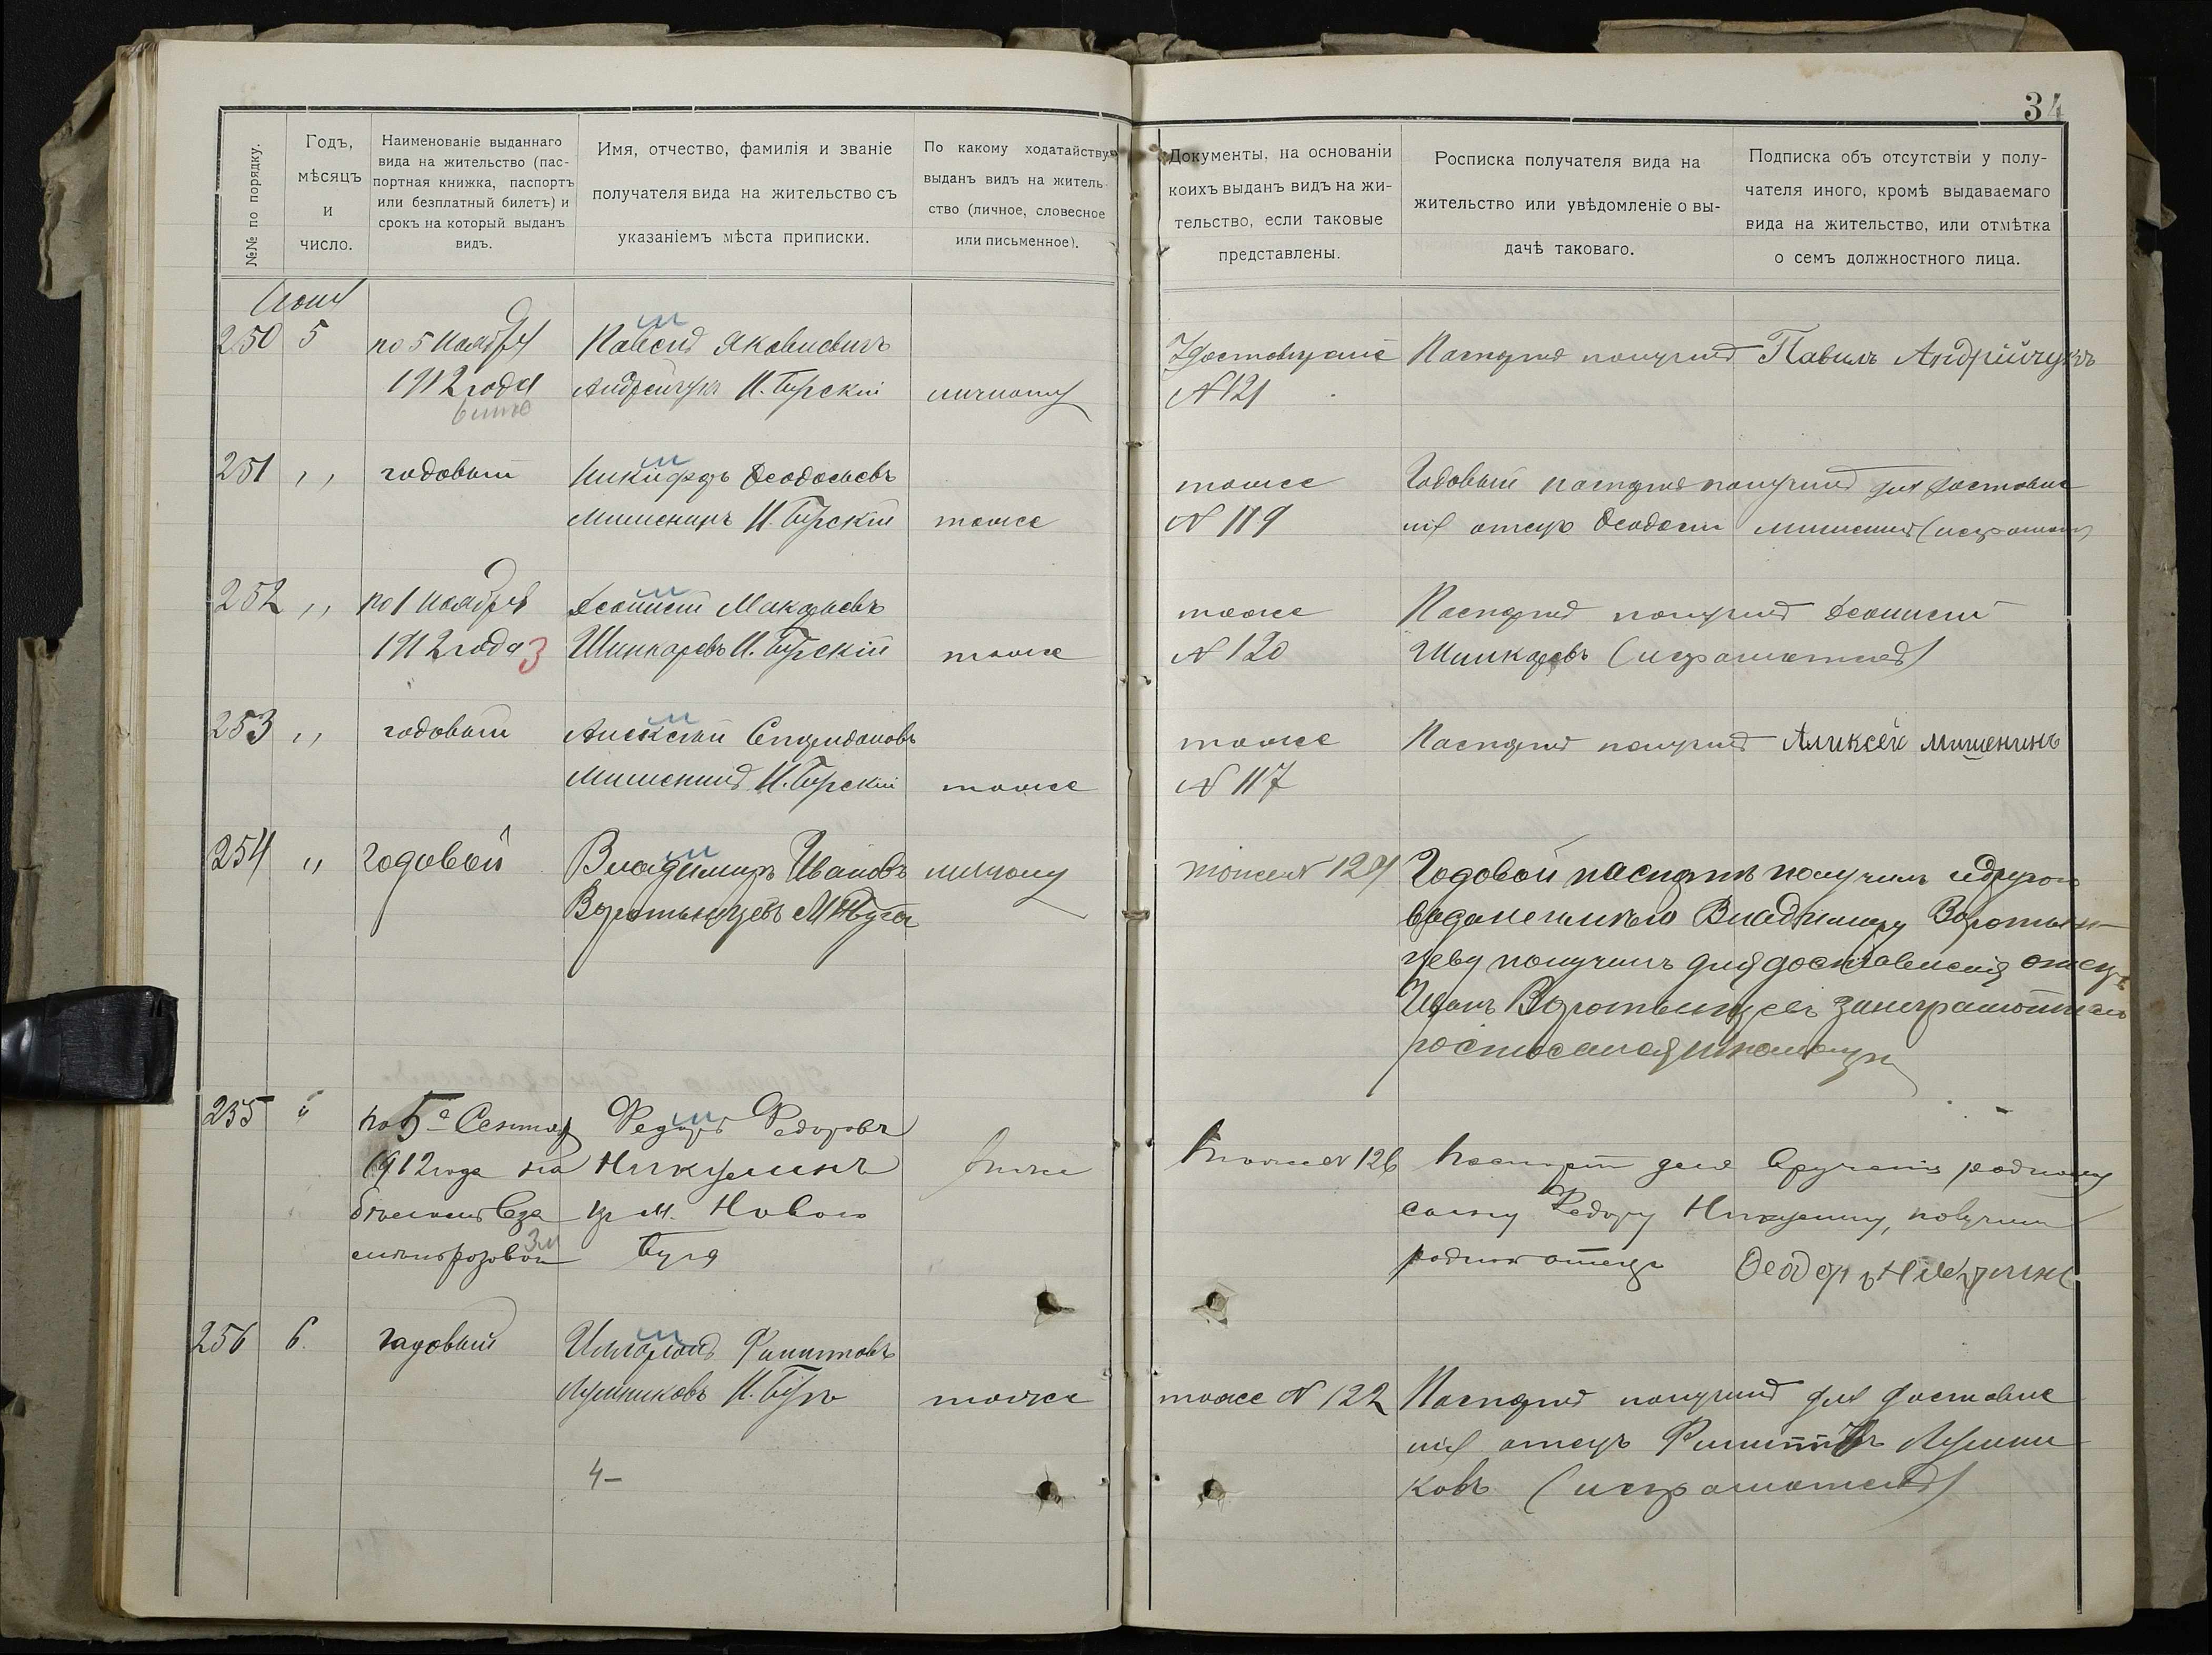 34
№№ по порядку.
Годъ,
мѣсяцъ
и
число.
Наименованіе выданнаго
вида на жительство (пас-
портная книжка, паспортъ
или безплатный билетъ) и
срокъ на который выданъ
видъ.
Имя, отчество, фамилія и званіе
получателя вида на жительство съ
указаніемъ мѣста приписки.
По какому ходатайству
выданъ видъ на житель-
ство (личное, словесное
или письменное).
Документы, на основаніи
коихъ выданъ видъ на жи-
тельство, если таковые
представлены.
Росписка получателя вида на
жительство или увѣдомленіе о вы-
дачѣ таковаго.
Подписка объ отсутствіи у полу-
чателя иного, кромѣ выдаваемаго
вида на жительство, или отмѣтка
о семъ должностного лица.
250 5 по 5 Ноября Павелъ Яковлевичъ
1912 года Андрейчукъ Н. Бугскій личному
Удостовереніе Паспортъ получилъ Павилъ Андрійчукъ
N 121
251 " годовый Никифоръ Феодосьевъ
Мишенинъ Н. Бугскій тоже
тоже Годовый паспортъ получилъ для доставле
N 119 нія отецъ Феодосій Мишенинъ (неграмот)
252 " по 1 Ноября Леонтій Макарьевъ
1912 года 3 Шинкаревъ Н. Бугскій тоже
тоже Паспортъ получилъ Леонтій
N 120 Шинкаревъ (неграмотный)
253 " годовый Алексей Спиридоновъ
Мишенинъ Н. Бугскій тоже
тоже Паспортъ получилъ Аликсей Мишенинъ
N 117
254 " годовой Владимиръ Ивановъ личному
Воротынцевъ М Н Буга
тоже N 124 Годовой паспортъ получилъ
Владимиру Воротын-
цеву получилъ для доставленія отецъ
Иванъ Воротынцевъ
255 " по 5е Сентяб Федоръ Федоровъ
1912 года на Никулинъ
из м. Новаго
Буга
тоже N 126 Паспорт для вручения родному
сыну Федору Никулину, получил
родной отецъ Феодоръ Никулинъ
256 6 годовый Илларіонъ Филиповъ
Лушниковъ Н. Бугъ тоже
4-
тоже N 122 Паспортъ получилъ для доставле
нія отецъ Филиппъ Лушни
ковъ (неграмотный)